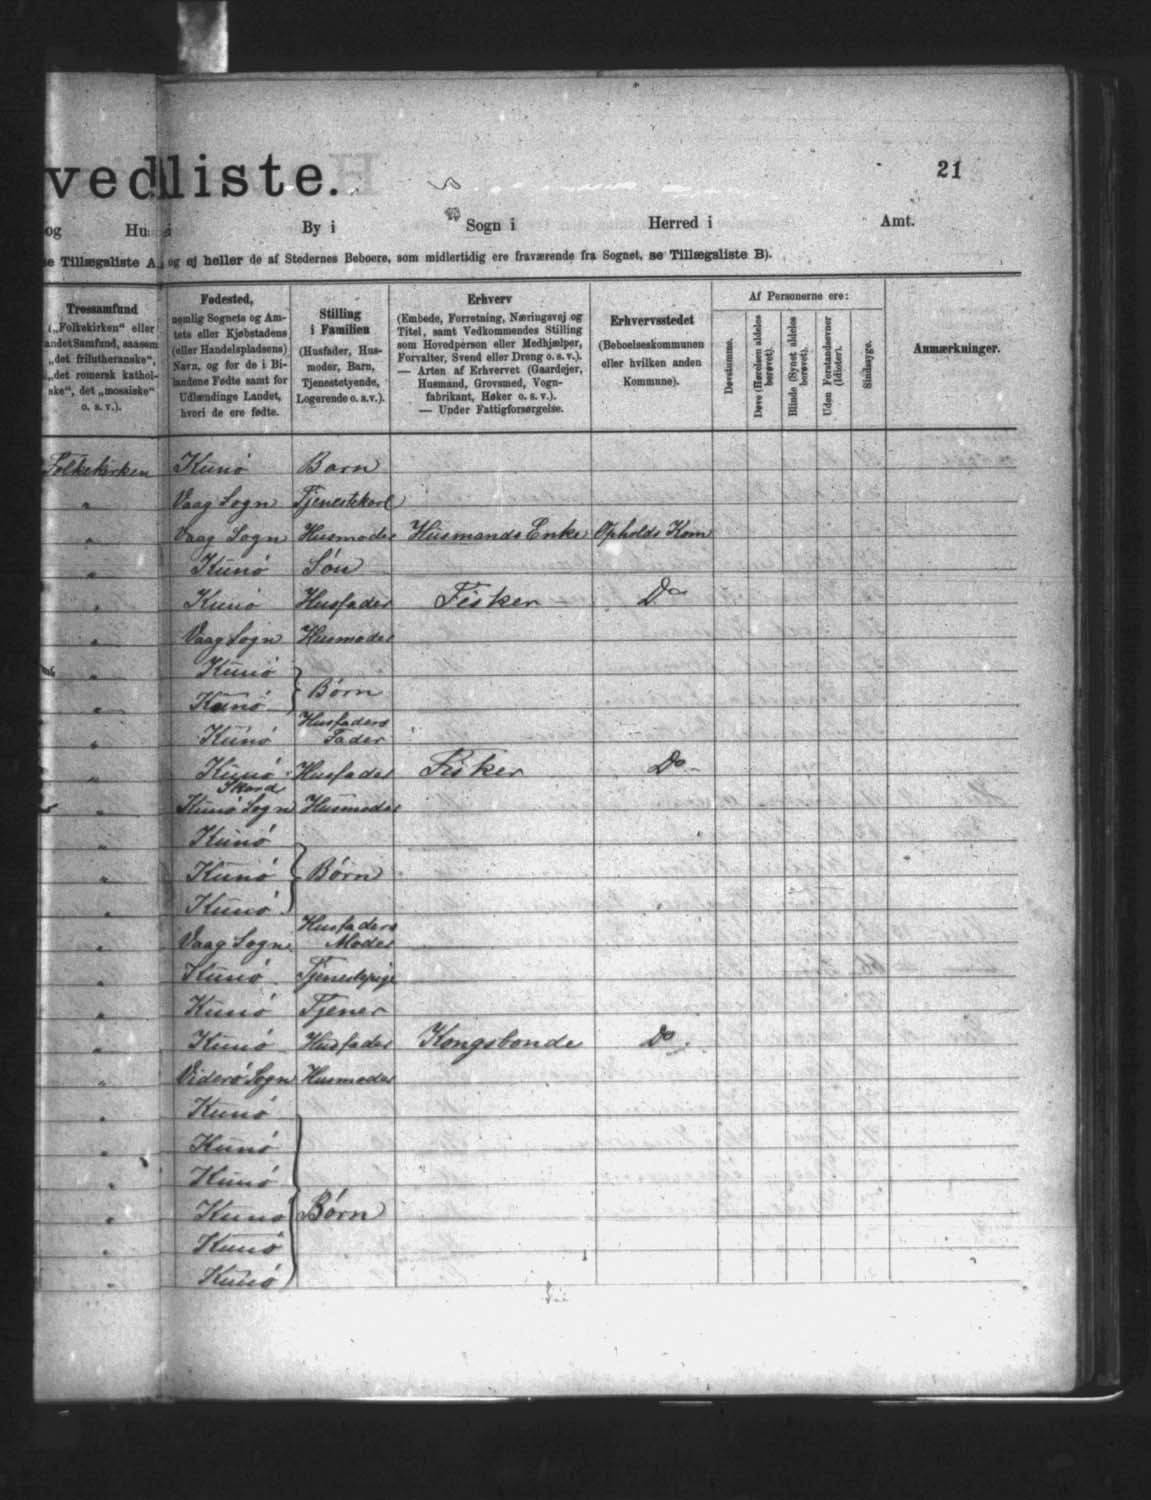 vedliste.
21
og Hu i By i Sogn i Herred i Amt.
se Tillægsliste A, og ej heller de af Stedernes Beboere, som midlertidig ere fraværende fra Sognet, se Tillægsliste B).
Trossamfund
(„Folkekirken“ eller
andet Samfund, saasom
„det frilutheranske“,
„det romersk kathol-
ske“, det „mosaiske“
o. s. v.).
Fødested,
nemlig Sognets og Am-
tets eller Kjøbstadens
(eller Handelspladsens)
Navn, og for de i Bi-
landene Fødte samt for
Udlændinge Landet,
hvori de ere fødte.
Stilling
i Familien
(Husfader, Hus-
moder, Barn,
Tjenestetyende,
Logerende o. s. v.).
Erhverv
(Embede, Forretning, Næringsvej og
Titel, samt Vedkommendes Stilling
som Hovedperson eller Medhjælper,
Forvalter, Svend eller Dreng o. s. v.).
— Arten af Erhvervet (Gaardejer,
Husmand, Grovsmed, Vogn-
fabrikant, Høker o. s. v.).
— Under Fattigforsørgelse.
Erhvervsstedet
(Beboelseskommunen
eller hvilken anden
Kommune).
Af Personerne ere:
Døvstumme.
Døve (Hørelsen aldeles
berøvet).
Blinde (Synet aldeles
berøvet).
Uden Forstandsevner
(Idioter).
Sindssyge.
Anmærkninger.
Folkekirken Kunö Barn
" Vaag Sogn Tjenestekarl
" Vaag Sogn Husmoder Husmands Enke Opholds Kom
" Kunö Sön
" Kunö Husfader Fisker Do
" Vaag Sogn Husmoder
" Kunö
" Kunö } Börn
" Kunö Husfaders
Fader
" Kunö Husfader Fisker Do
Skard
" Kunö Sogn Husmoder
" Kunö
" Kunö } Börn
" Kunö
" Vaag Sogn Husfaders
Moder
" Kunö Tjenestepige
" Kunö Tjener
" Kunö Husfader Kongsbonde Do
" Viderö Sogn Husmoder
" Kunö
" Kunö
" Kunö
" Kunö } Börn
" Kunö
" Kunö